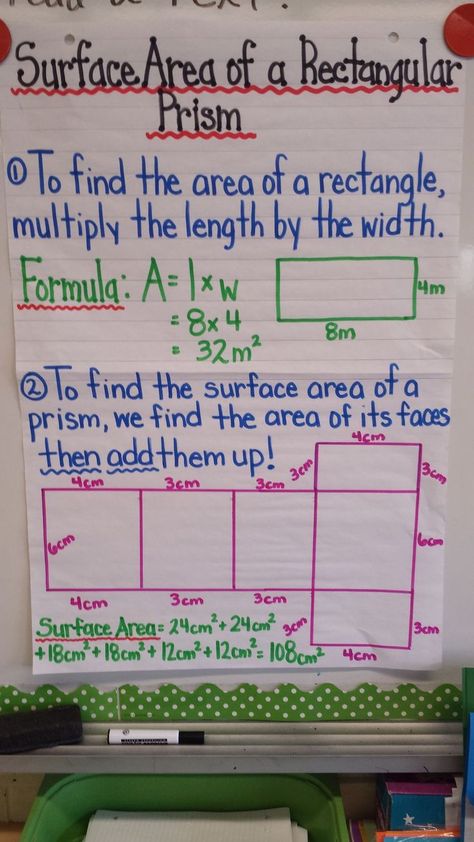 Surface Area of a Rectangular
Prism
① To find the area of a rectangle,
multiply the length by the width.
Formula: A = l x w
= 8 x 4
= 32m²
4m
8m
② To find the surface area of a
prism, we find the area of its faces
then add them up!
4cm
3cm
3cm
4cm
3cm
3cm
6cm
6cm
4cm
3cm
3cm
3cm
3cm
4cm
Surface Area = 24cm² + 24cm²
+ 18cm² + 18cm² + 12cm² + 12cm² = 108cm²